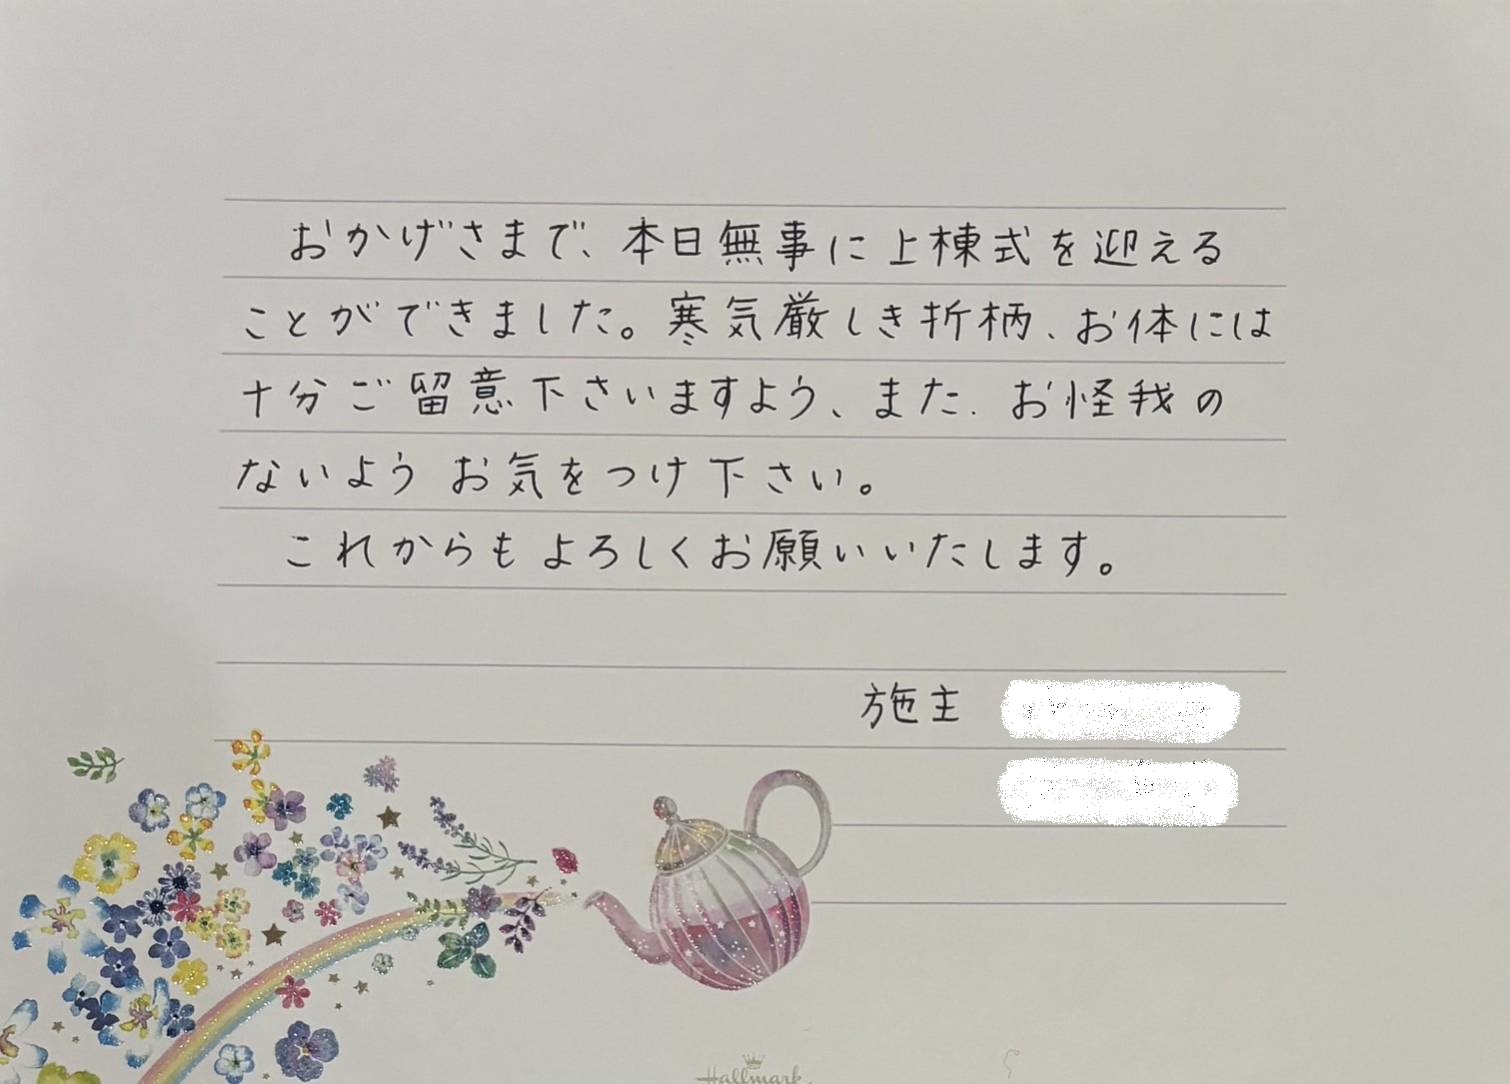 おかげさまで、本日無事に上棟式を迎える
ことができました。寒気厳しき折柄、お体には
十分ご留意下さいますよう、また、お怪我の
ないようお気をつけ下さい。
これからもよろしくお願いいたします。
施主
Hallmark